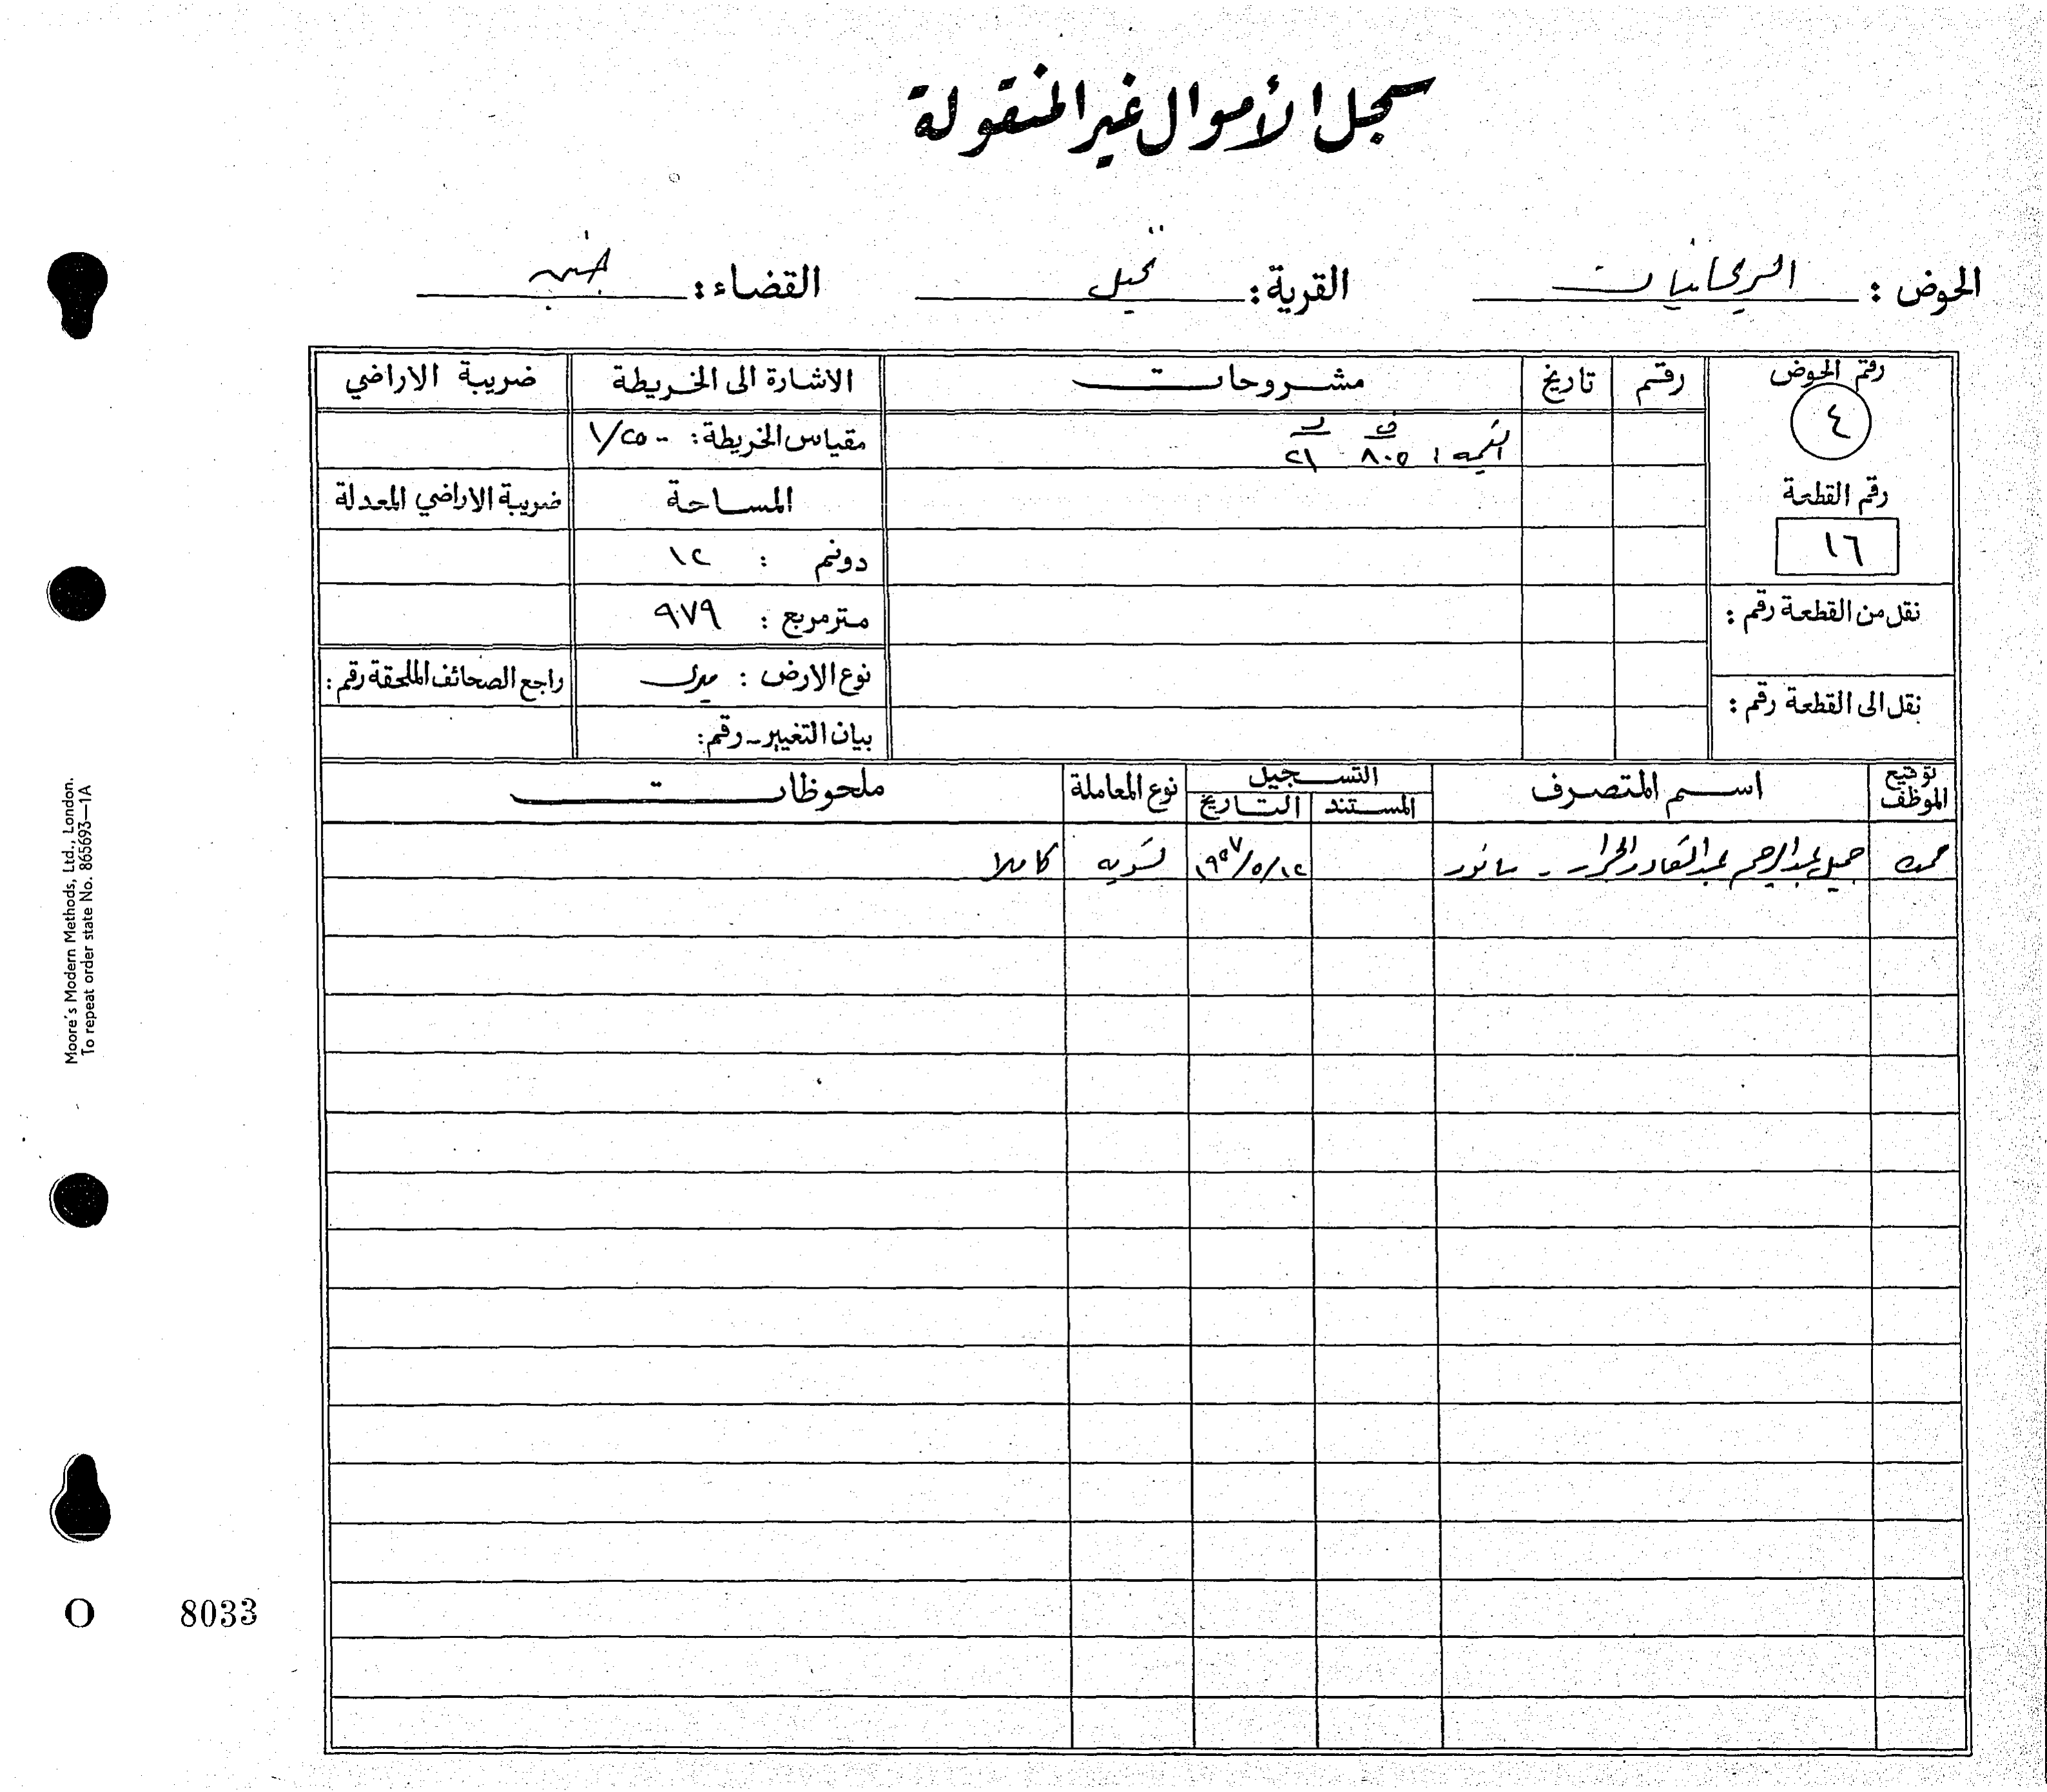 سجل الأموال غير المنقولة
الحوض : الريحانيات القرية : عجل القضاء : جنين
رقم الحوض رقم تاريخ مشروحات الاشارة الى الخريطة ضريبة الاراضي
٤
القيمة : ف ٨٠٥ د ٢١
مقياس الخريطة : ١/٢٥٠٠
رقم القطعة
١٦
المساحة
ضريبة الاراضي المعدلة
دونم : ١٢
متر مربع : ٩٧٩
نقل من القطعة رقم :
نوع الارض : ميري
راجع الصحائف الملحقة رقم :
نقل الى القطعة رقم :
بيان التغيير - رقم :
توقيع الموظف اسم المتصرف التسجيل نوع المعاملة ملحوظات
المستند التاريخ
جميل عبدالرحيم عبدالقادر الجرار - سانور ١٩٥٧/٥/١٢ تسويه كاملا
Moore's Modern Methods, Ltd., London.
To repeat order state No. 865693—1A
O 8033